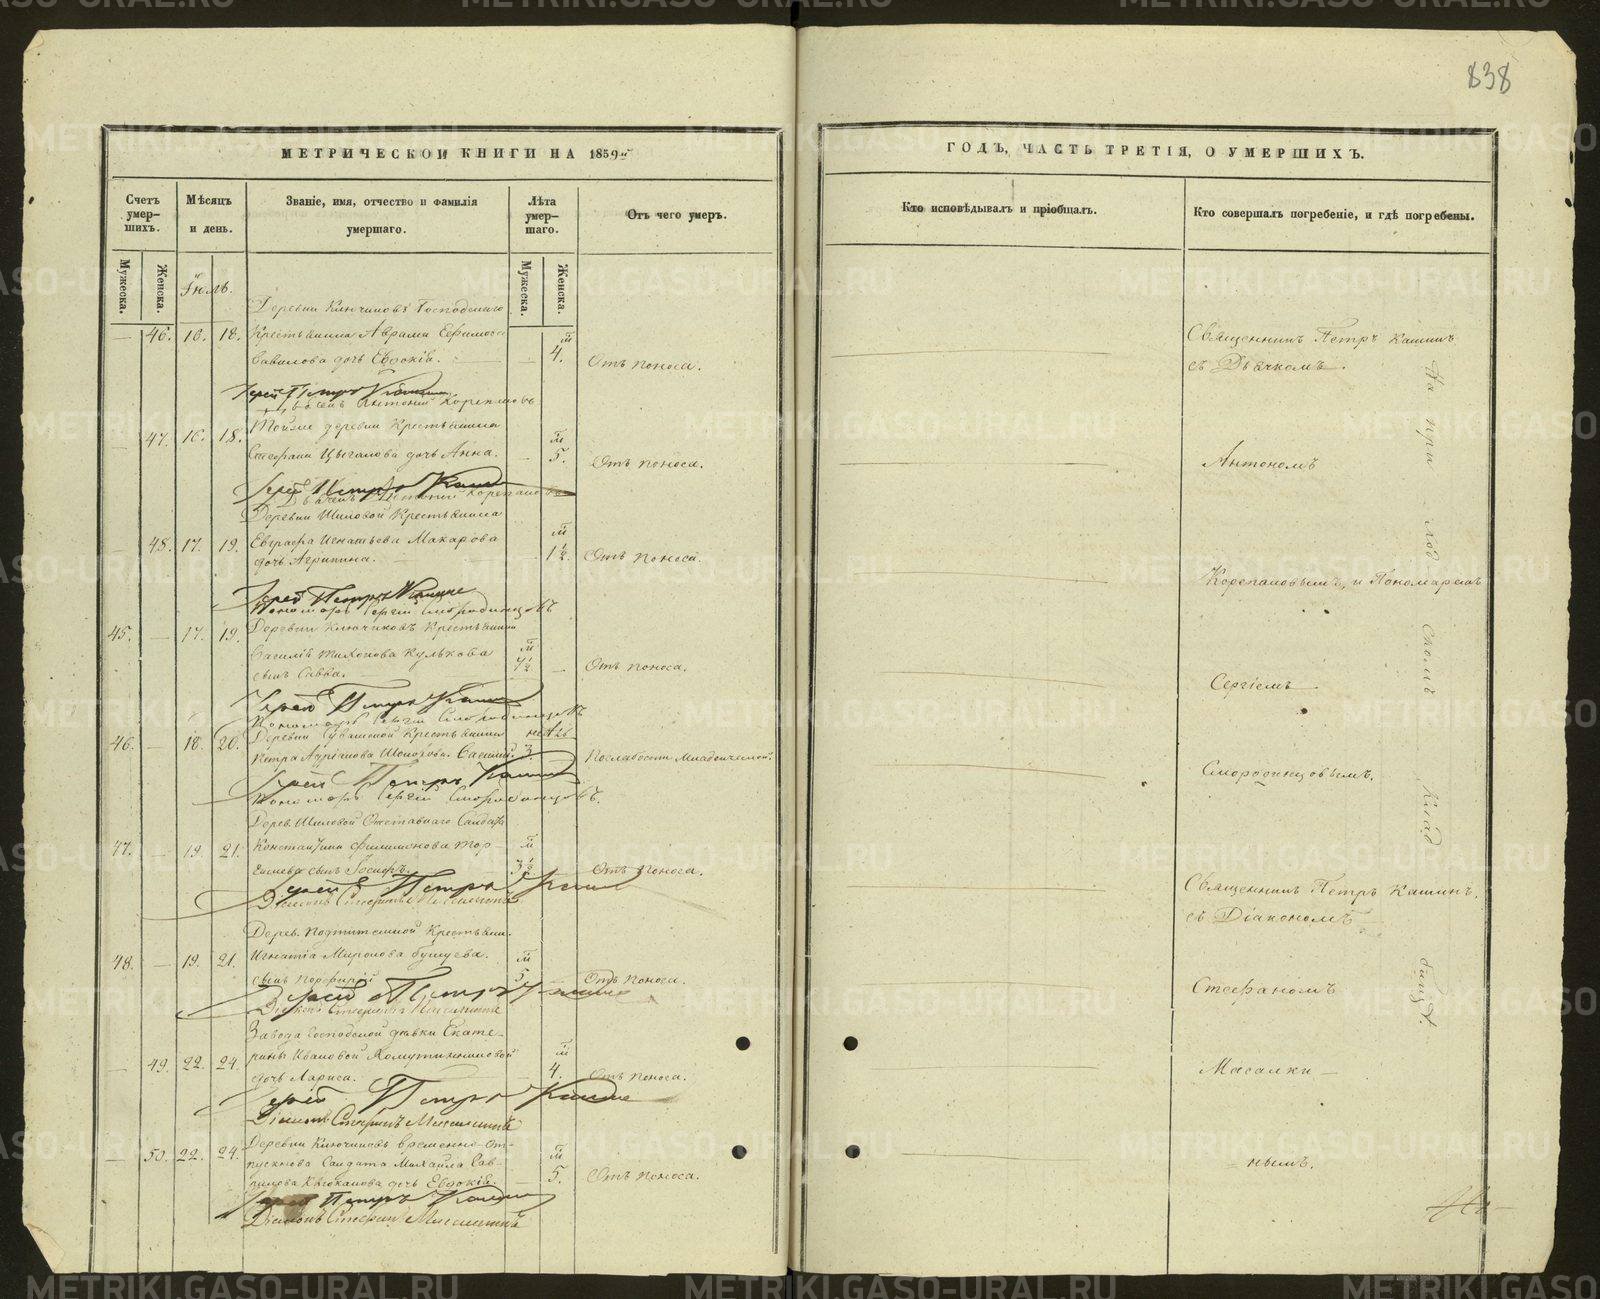 838
МЕТРИЧЕСКОЙ КНИГИ НА 1859й
ГОДЪ, ЧАСТЬ ТРЕТІЯ, О УМЕРШИХЪ.
Счетъ умер-
шихъ.
Мѣсяцъ
и день.
Званіе, имя, отчество и фамилія
умершаго.
Лѣта
умер-
шаго.
Отъ чего умеръ.
Кто исповѣдывалъ и пріобщалъ.
Кто совершалъ погребеніе, и гдѣ погребены.
Мужеска.
Женска.
Мужеска.
Женска.
Іюль.
Деревни Ключиковъ Господскаго
46. 16. 18. Крестьянина Аврама Ефимова
Вавилова дочь Евдокія. 4. м Отъ поноса.
Іерей Петръ Кашинъ
Дьячекъ Антоній Корепановъ
47. 16. 18. Тойже деревни Крестьянина
Стефана Цыганова дочь Анна. 5. м Отъ поноса.
Іерей Петръ Кашинъ
Дьячекъ Антоній Корепановъ
Деревни Шиловой Крестьянина
48. 17. 19. Евграфа Игнатьева Макарова
дочь Агрипина. 1½. м Отъ поноса.
Іерей Петръ Кашинъ
Пономарь Сергій Смородинцовъ
45. 17. 19. Деревни Ключиковъ Крестьянина
Василія Тихонова Кулькова
сынъ Савва. м ½ Отъ поноса.
Іерей Петръ Кашинъ
Пономарь Сергій Смородинцовъ
46. 18. 20. Деревни Крестьянина
Петра Василій. 3. По слабости младенческой.
Іерей Петръ Кашинъ
Пономарь Сергій Смородинцовъ.
Дерев. Шиловой Отставнаго Солдата
47. 19. 21. Константина Филимонова
сынъ Іосифъ. м 3½ Отъ поноса.
Іерей Петръ Кашинъ
Діаконъ Стефанъ
Дерев. Крестьян.
48. 19. 21. Игнатія Миронова Бушуева.
сынъ Порфирій м 5 Отъ поноса.
Іерей Петръ Кашинъ
Діаконъ Стефанъ
Завода Господской дѣвки Екате-
49. 22. 24. рины Ивановой
дочь Лариса. м 4. Отъ поноса.
Іерей Петръ Кашинъ
Діаконъ Стефанъ
Деревни Ключиковъ временно-от-
50. 22. 24. пускнова Солдата Михайла
дочь Евдокія. м 5. Отъ поноса.
Іерей Петръ Кашинъ
Діаконъ Стефанъ
Священникъ Петръ Кашинъ
съ Дьячкомъ.
Антономъ
Корепановымъ, и Пономаремъ
Сергіемъ
Смородинцовымъ.
Священникъ Петръ Кашинъ.
съ Діакономъ
Стефаномъ
Масалки-
нымъ.
На при- ход скомъ клад бищѣ.
METRIKI.GASO-URAL.RU